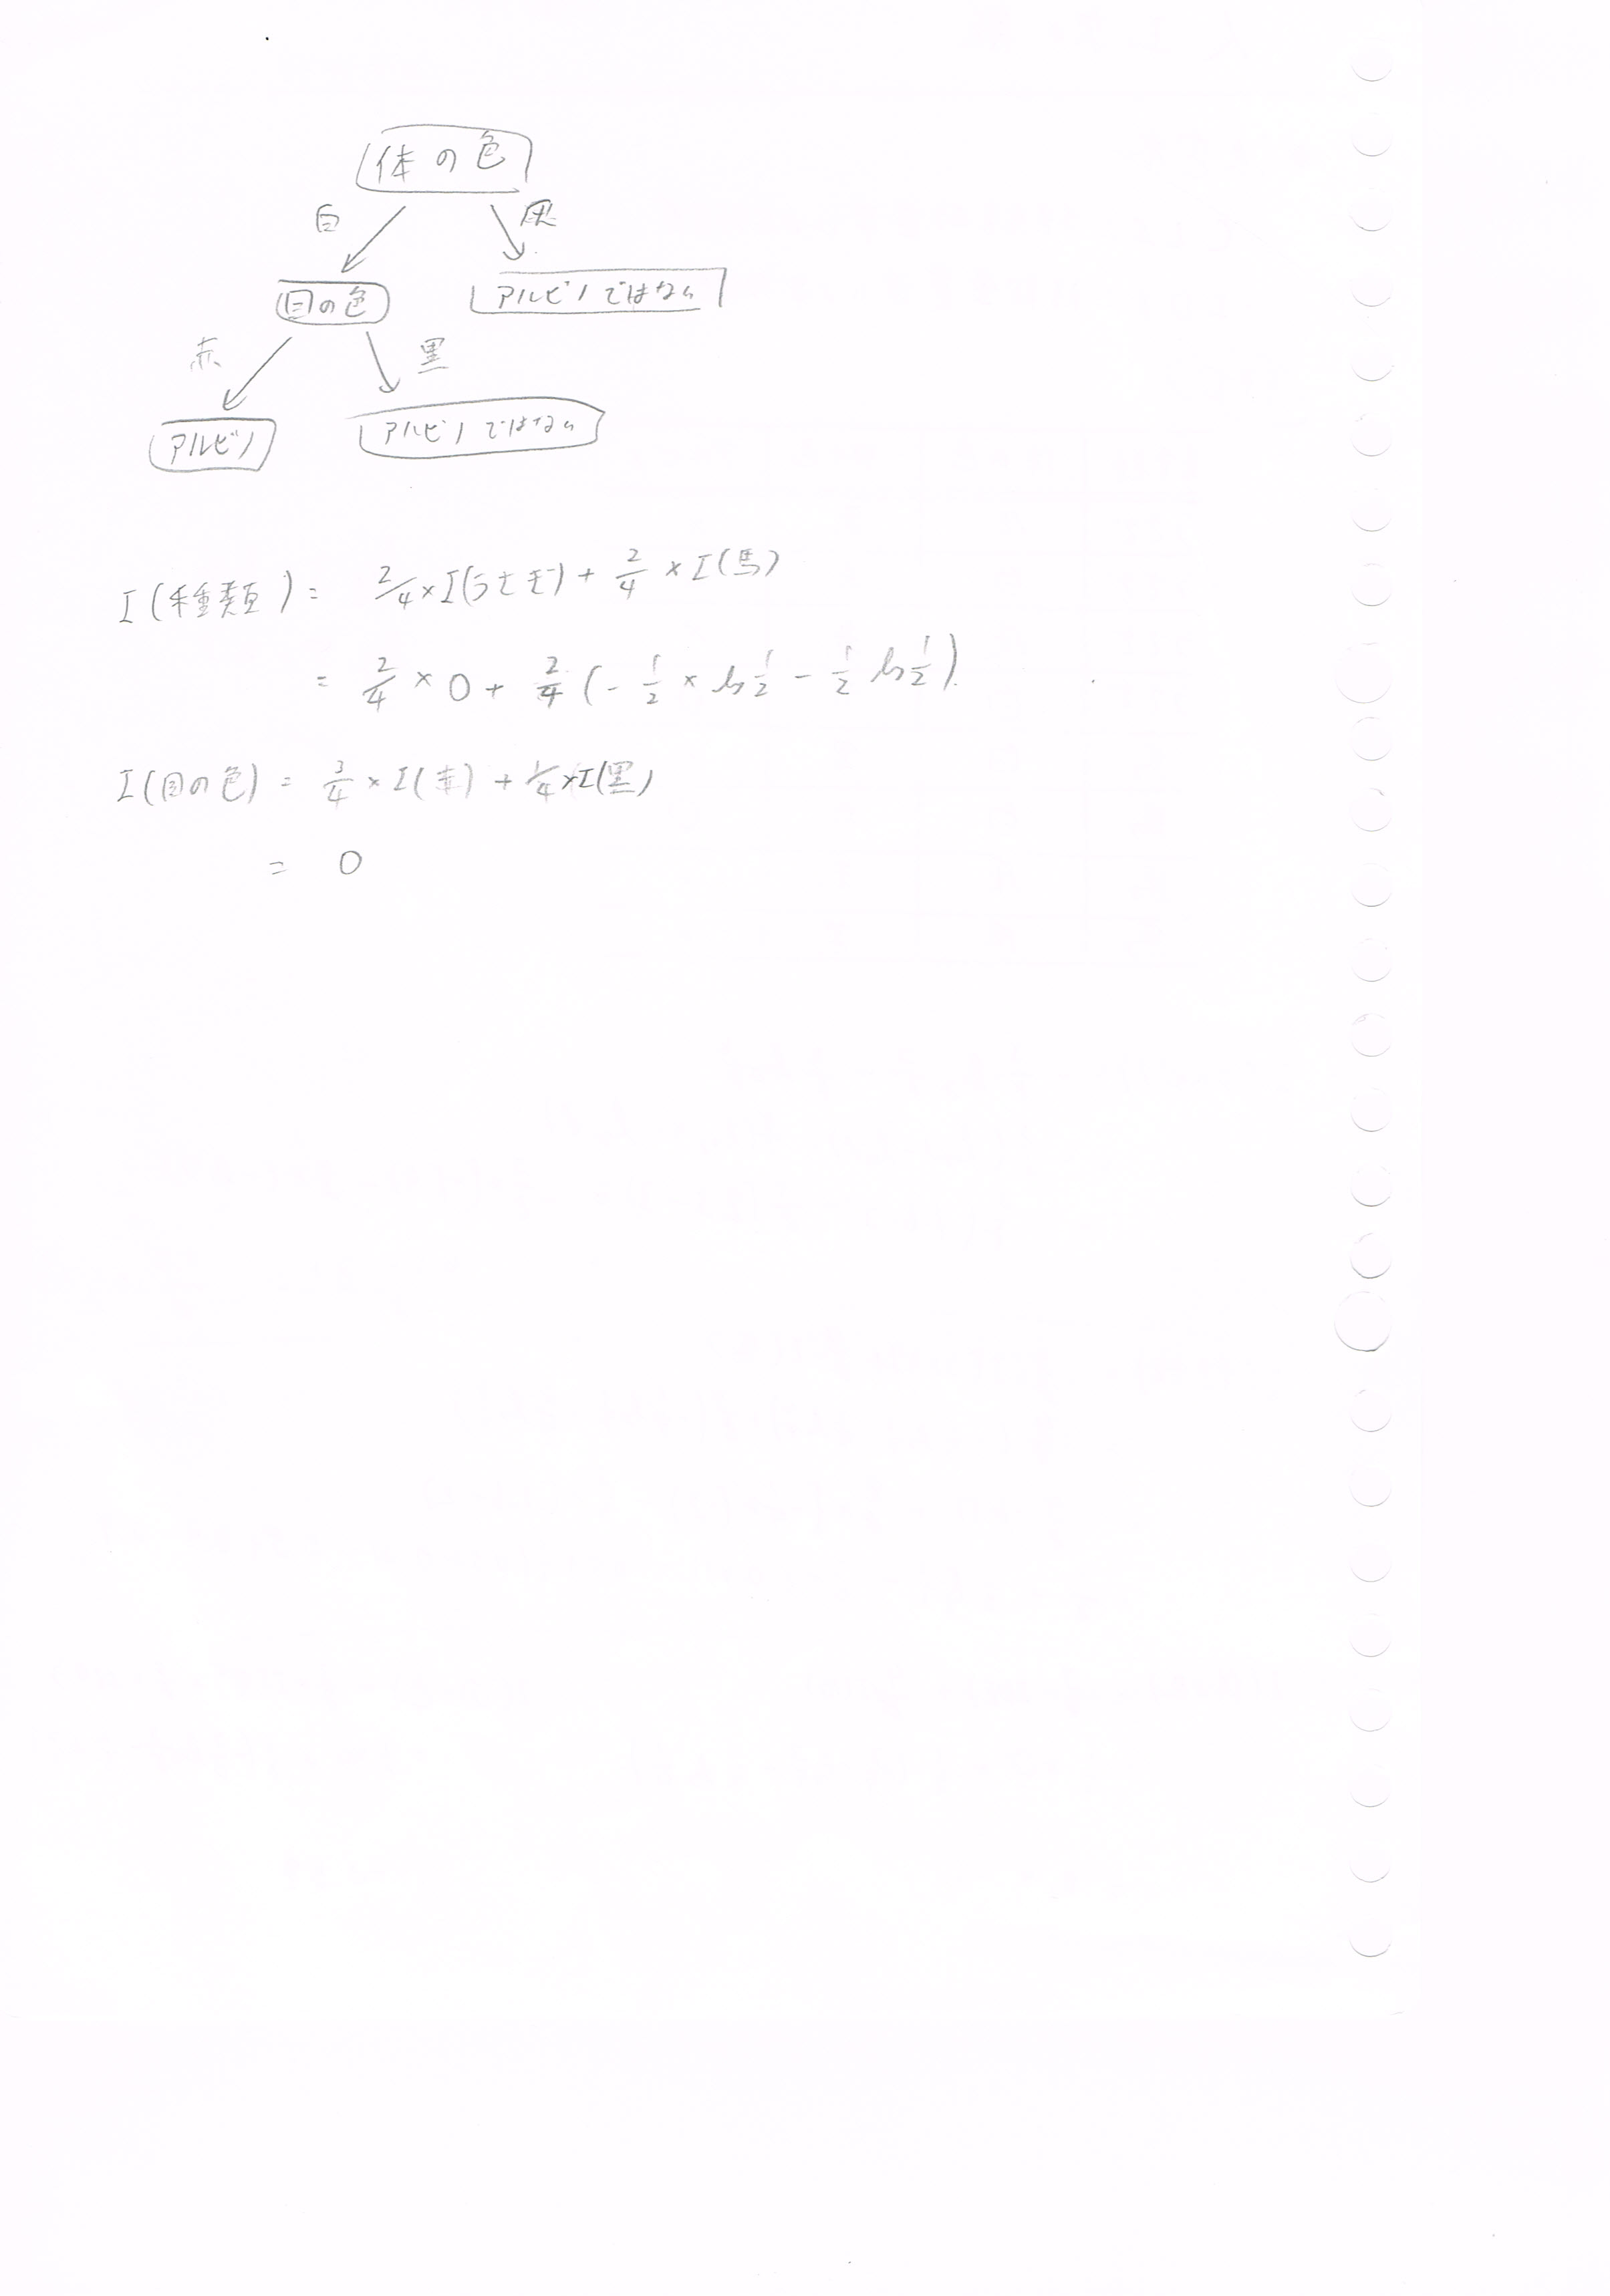 体の色
白 灰
目の色 アルビノではない
赤 黒
アルビノ アルビノではない
I(種類) = 2/4 × I(うさぎ) + 2/4 × I(馬)
= 2/4 × 0 + 2/4 (- 1/2 × log 1/2 - 1/2 log 1/2)
I(目の色) = 3/4 × I(赤) + 1/4 × I(黒)
= 0